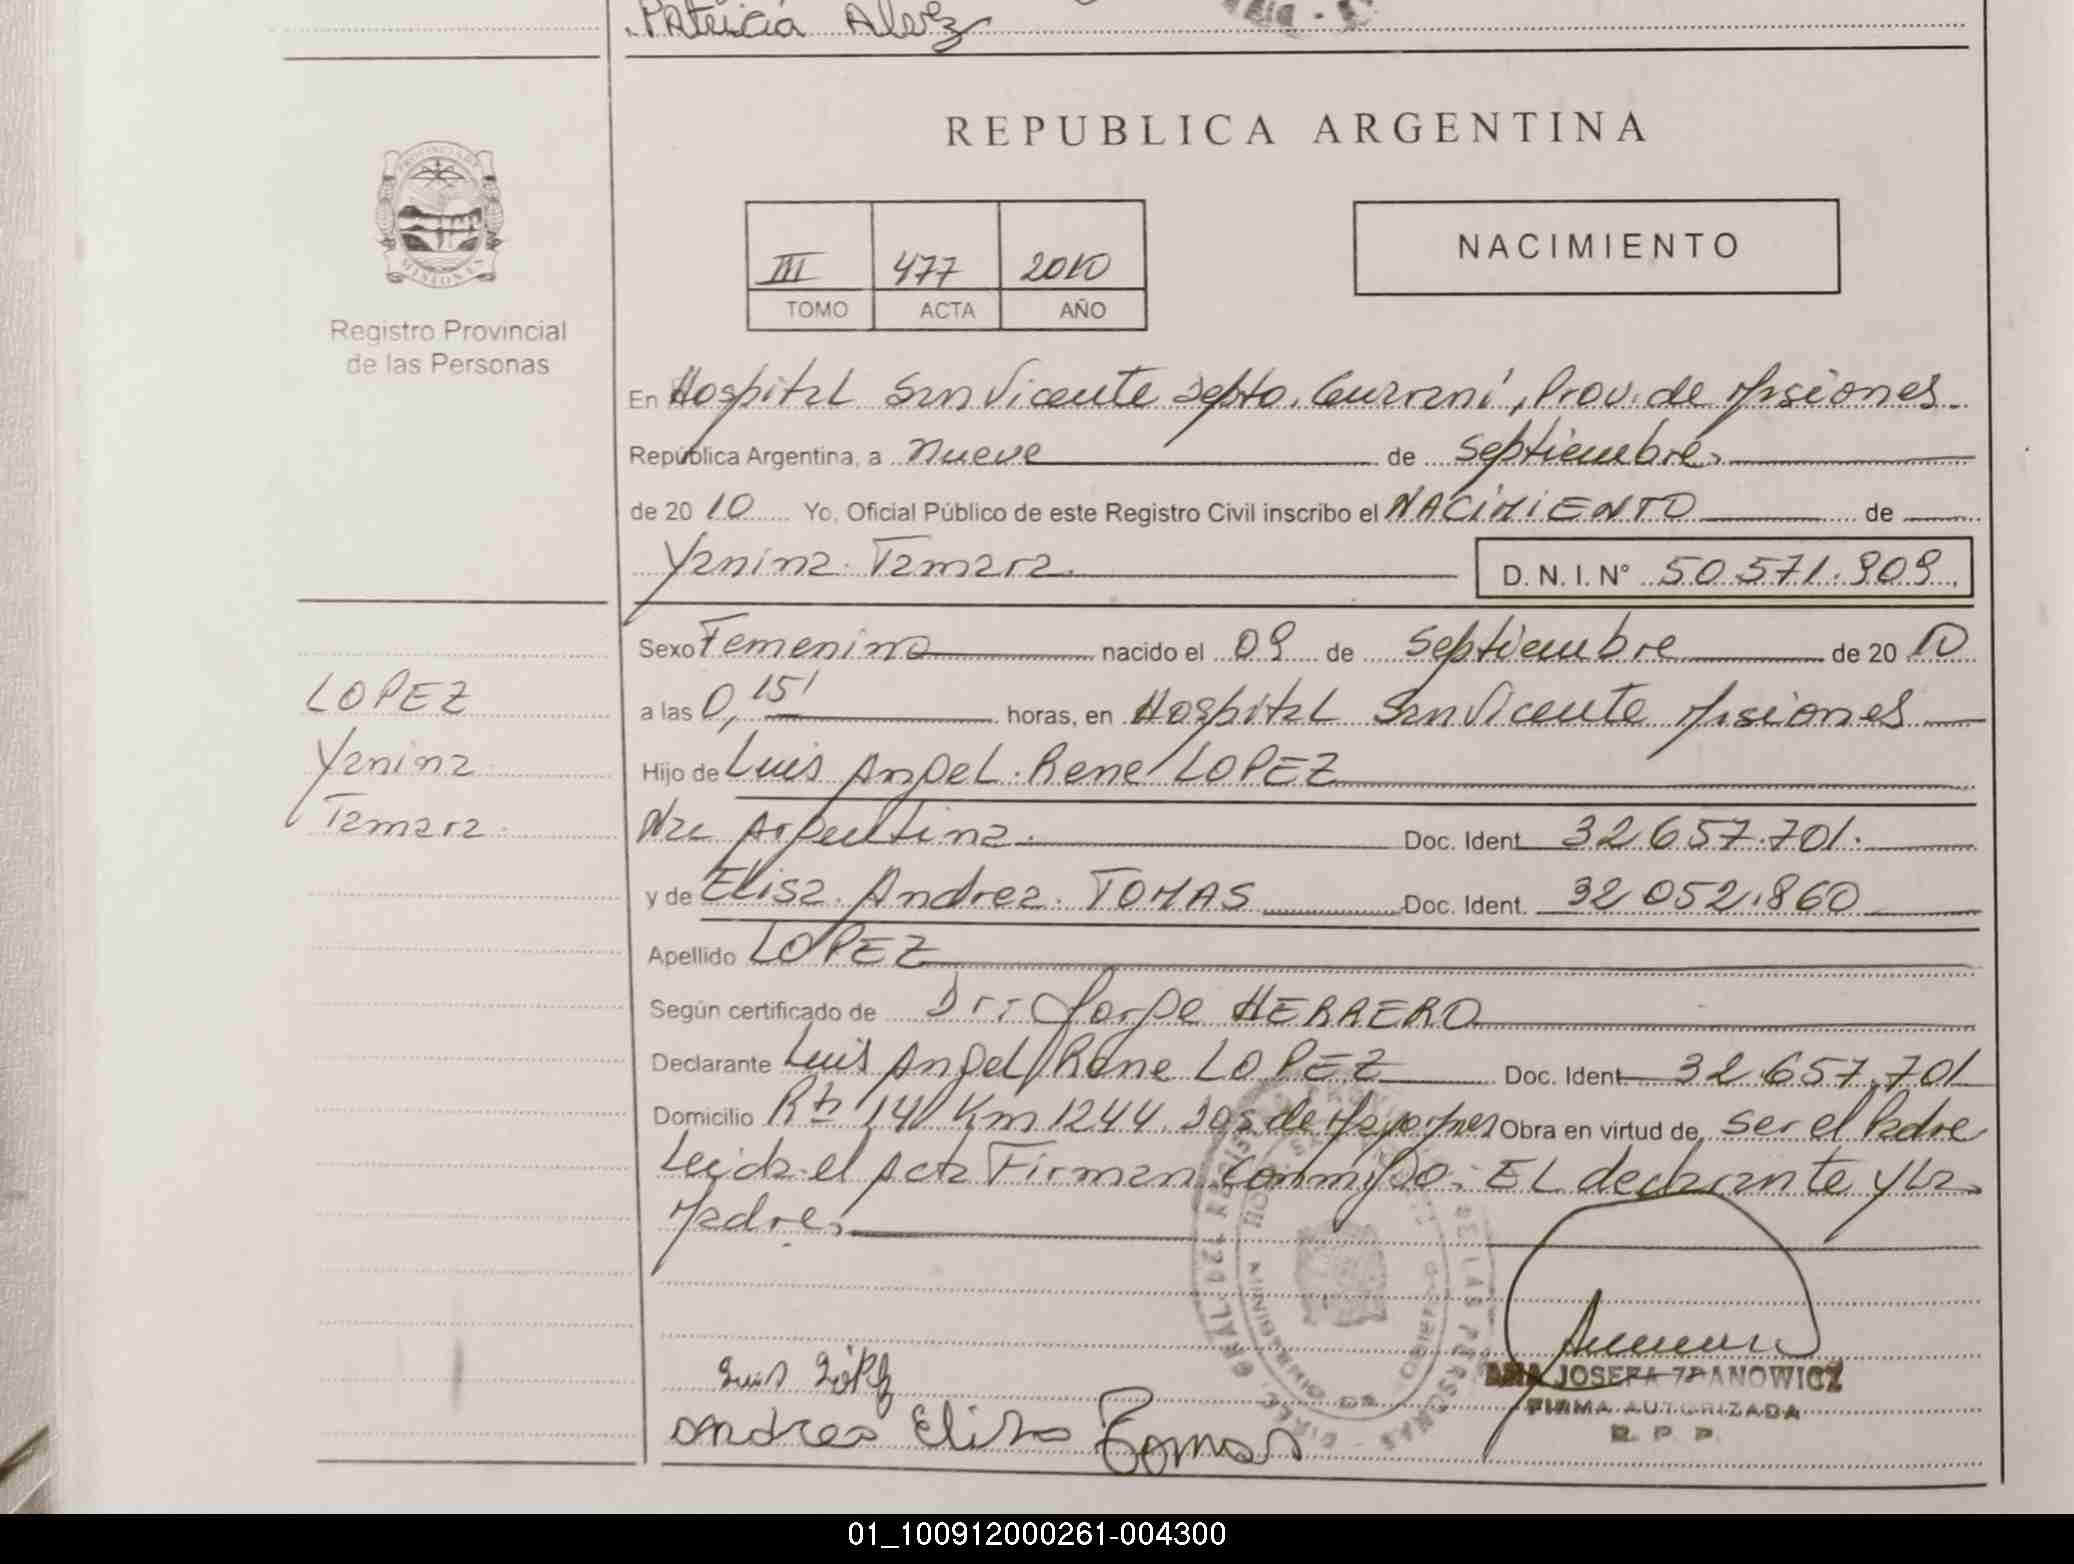 Patricia Alvez
REPUBLICA ARGENTINA
PROVINCIA DE
MISIONES
Registro Provincial
de las Personas
III 477 2010
TOMO ACTA AÑO
NACIMIENTO
En Hospital San Vicente Depto. Guarani, Prov. de Misiones
República Argentina, a nueve de septiembre
de 2010 Yo, Oficial Público de este Registro Civil inscribo el NACIMIENTO de
Yanina Tamara D. N. I. N° 50.571.909
Sexo Femenino nacido el 09 de septiembre de 2010
LOPEZ
Yanina
Tamara
a las 0,15' horas, en Hospital San Vicente Misiones
Hijo de Luis Angel Rene LOPEZ
Nac Argentina Doc. Ident. 32.657.701
y de Elisa Andrea TOMAS Doc. Ident. 32.052.860
Apellido LOPEZ
Según certificado de Dr: Jorge HERRERO
Declarante Luis Angel Rene LOPEZ Doc. Ident. 32.657.701
Domicilio Rta 14 Km 1244 Obra en virtud de ser el Padre
Leida el acta Firman conmigo: EL declarante y La
Madre
Luis López
Andrea Elisa Tomas
ANA JOSEFA ZDANOWICZ
FIRMA AUTORIZADA
R. P. P.
01_100912000261-004300